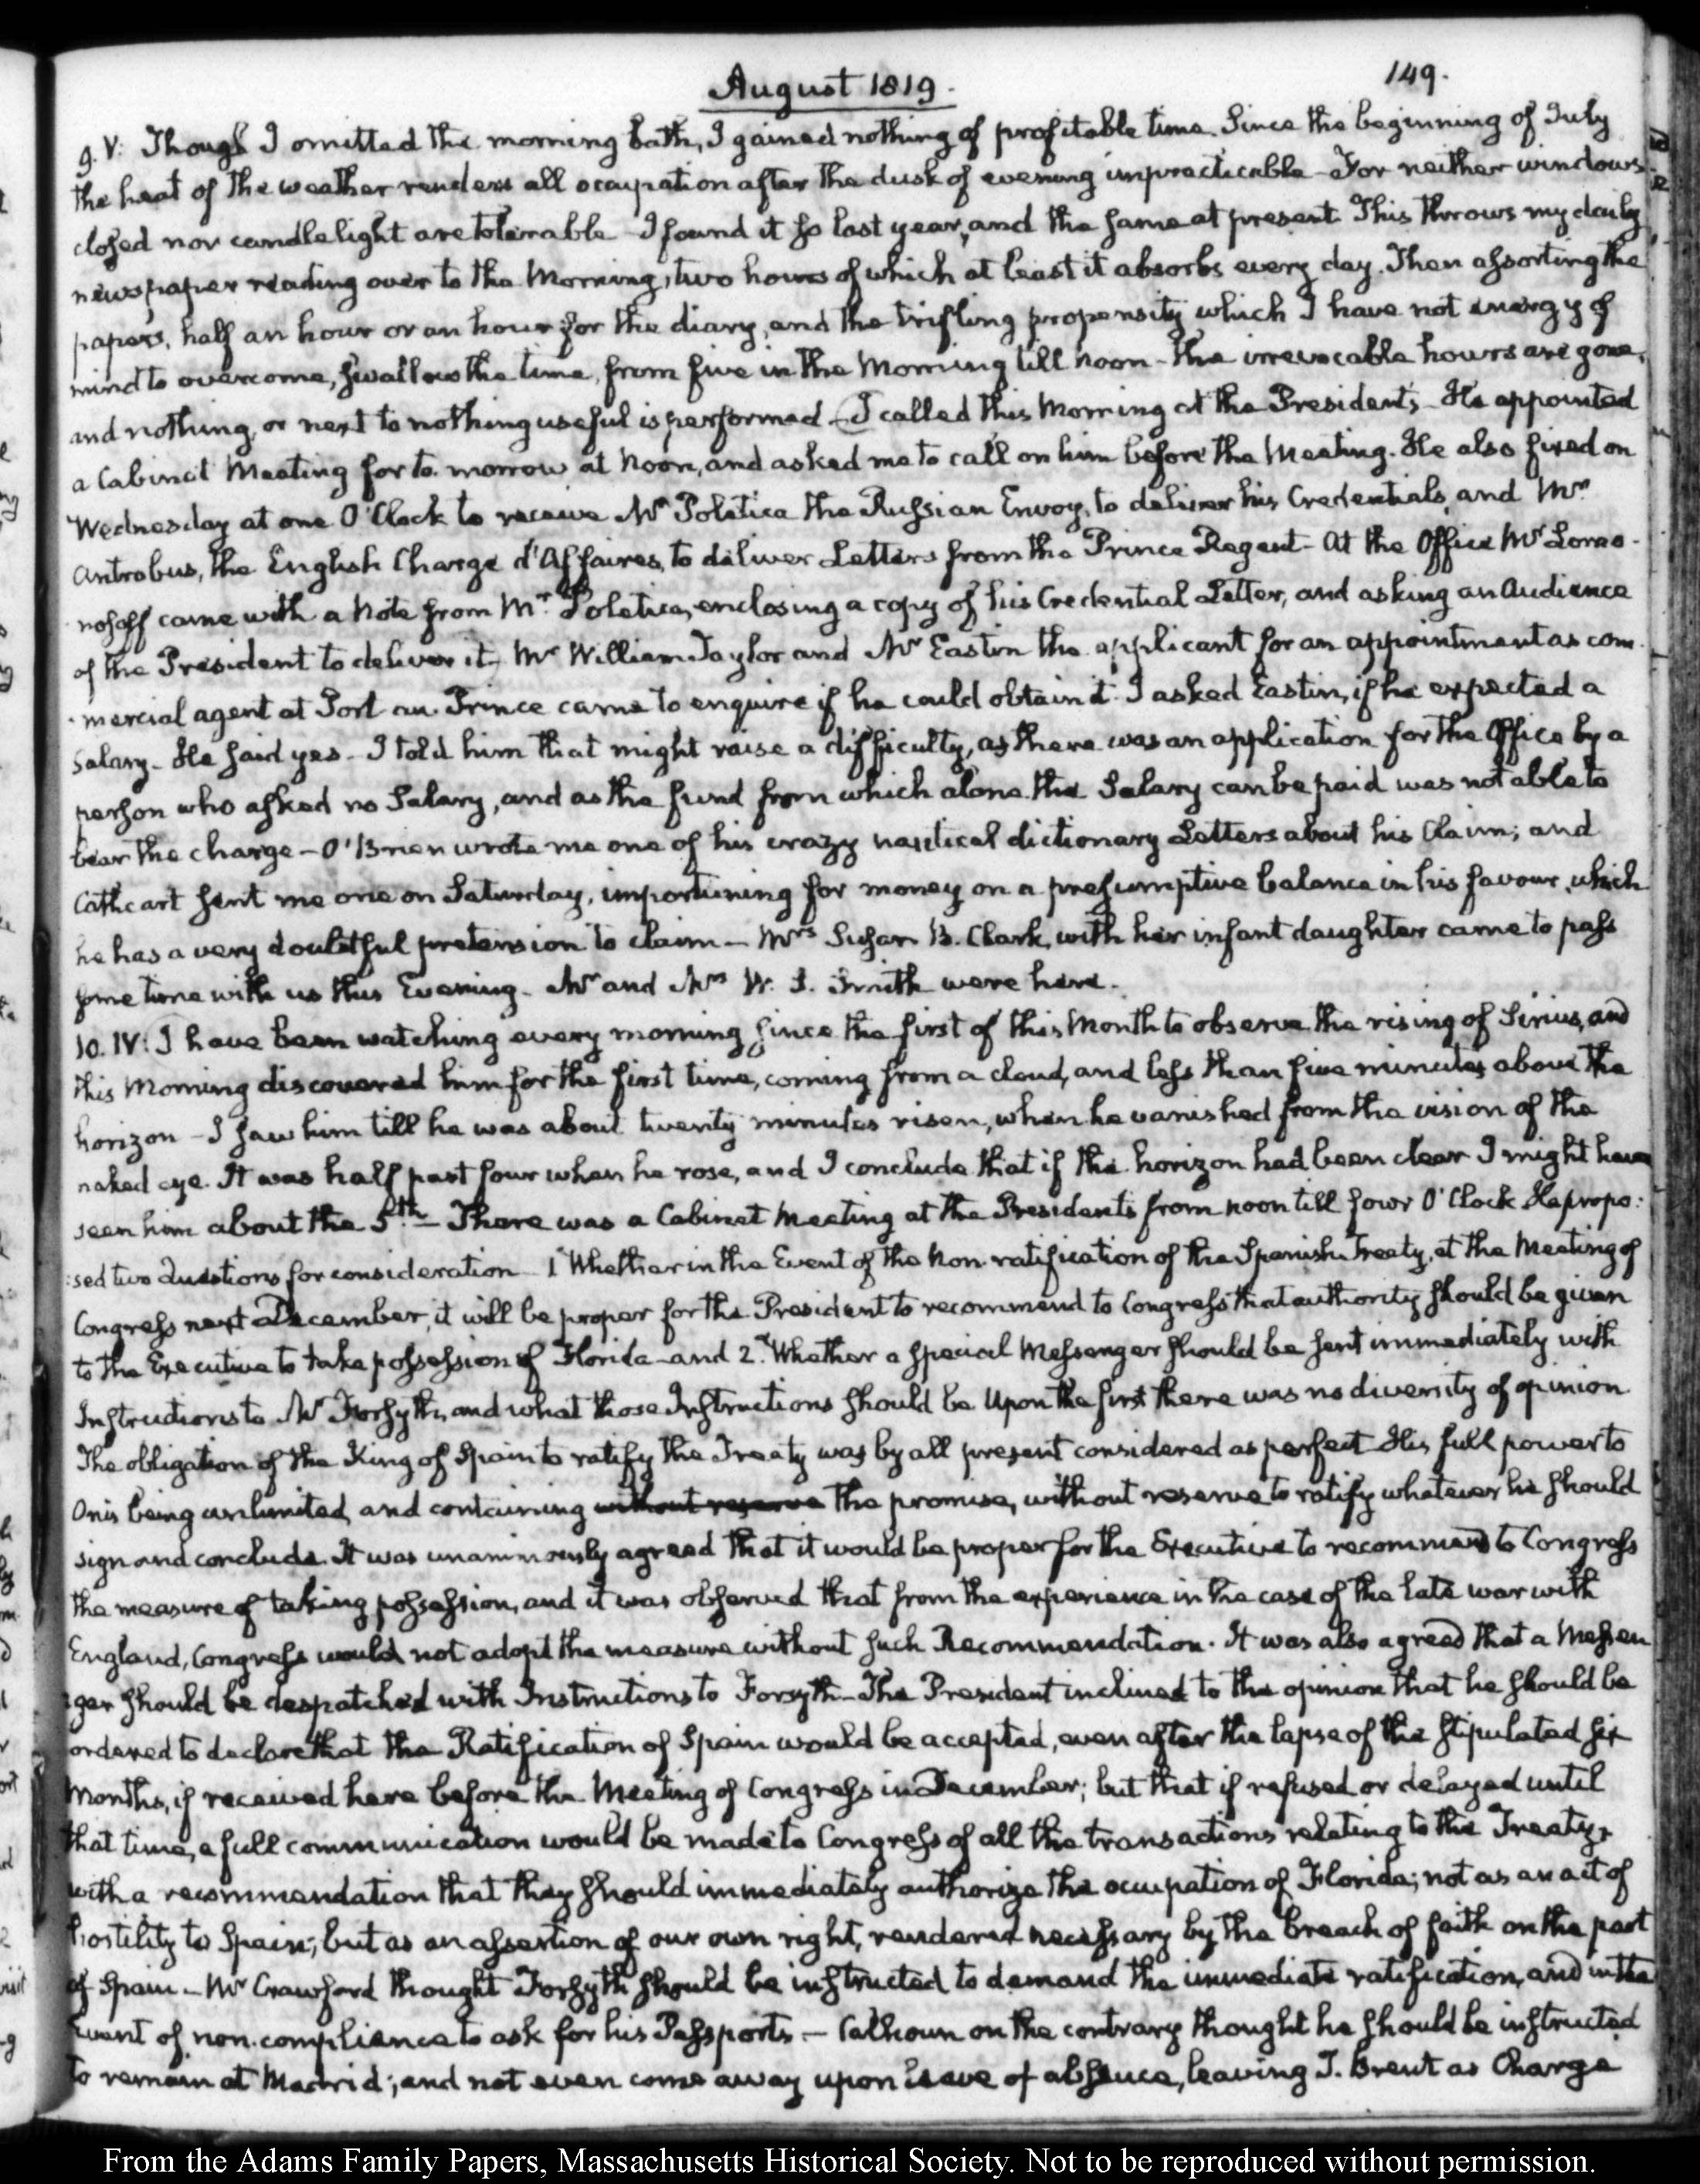 August 1819.
149.
9. V: Though I omitted the morning bath, I gained nothing of profitable time. Since the beginning of July
the heat of the weather renders all occupation after the dusk of evening impracticable - For neither windows
closed nor candlelight are tolerable - I found it so last year, and the same at present. This throws my daily
newspaper reading over to the Morning, two hours of which at least it absorbs every day. Then assorting the
papers, half an hour or an hour for the diary, and the trifling propensity which I have not energy of
mind to overcome, swallows the time, from five in the Morning till Noon - the irrevocable hours are gone,
and nothing, or next to nothing useful is performed - I called this Morning at the President's - He appointed
a Cabinet Meeting for to-morrow at Noon, and asked me to call on him before the Meeting. He also fixed on
Wednesday at one O'Clock to receive Mr. Poletica the Russian Envoy, to deliver his Credentials, and Mr.
Antrobus, the English Chargé d'Affaires, to deliver Letters from the Prince Regent - At the Office Mr Lomo-
nosoff came with a Note from Mr. Poletica, enclosing a copy of his Credential Letter, and asking an Audience
of the President to deliver it. Mr William Taylor and Mr Eastin the applicant for an appointment as com-
mercial agent at Port au Prince came to enquire if he could obtain it. I asked Eastin, if he expected a
salary - He said yes - I told him that might raise a difficulty, as there was an application for the Office by a
person who asked no Salary, and as the fund from which alone the Salary can be paid was not able to
bear the charge - O'Brien wrote me one of his crazy nautical dictionary Letters about his Claim; and
Cathcart sent me one on Saturday, importuning for money on a presumptive balance in his favour, which
he has a very doubtful pretension to claim - Mrs Susan B. Clark, with her infant daughter came to pass
some time with us this Evening - Mr and Mrs W. S. Smith were here.
10. IV: I have been watching every morning since the first of this Month to observe the rising of Sirius, and
this Morning discovered him for the first time, coming from a cloud, and less than five minutes above the
horizon - I saw him till he was about twenty minutes risen, when he vanished from the vision of the
naked eye. It was half past four when he rose, and I conclude that if the horizon had been clear I might have
seen him about the 5th - There was a Cabinet Meeting at the President's from noon till four O'Clock He propo:
:sed two Questions for consideration - 1 Whether in the Event of the Non-ratification of the Spanish Treaty, at the Meeting of
Congress next December, it will be proper for the President to recommend to Congress that authority should be given
to the Executive to take possession of Florida - and 2. Whether a special Messenger should be sent immediately with
Instructions to Mr Forsyth, and what those Instructions should be Upon the first there was no diversity of opinion
The obligation of the King of Spain to ratify the Treaty was by all present considered as perfect His full power to
Onis being unlimited, and containing without reserve the promise, without reserve to ratify whatever he should
sign and conclude. It was unanimously agreed that it would be proper for the Executive to recommend to Congress
the measure of taking possession, and it was observed that from the experience in the case of the late war with
England, Congress would not adopt the measure without such Recommendation. It was also agreed that a Messen
:ger should be despatched with Instructions to Forsyth - The President inclined to the opinion that he should be
ordered to declare that the Ratification of Spain would be accepted, even after the lapse of the stipulated six
Months, if received here before the Meeting of Congress in December; but that if refused or delayed until
that time, a full communication would be made to Congress of all the transactions relating to the Treaty,
with a recommendation that they should immediately authorize the occupation of Florida; not as an act of
hostility to Spain; but as an assertion of our own right, rendered necessary by the breach of faith on the part
of Spain - Mr Crawford thought Forsyth should be instructed to demand the immediate ratification, and in the
Event of non-compliance to ask for his Passports - Calhoun on the contrary thought he should be instructed
to remain at Madrid; and not even come away upon leave of absence, leaving T. Brent as Charge
From the Adams Family Papers, Massachusetts Historical Society. Not to be reproduced without permission.